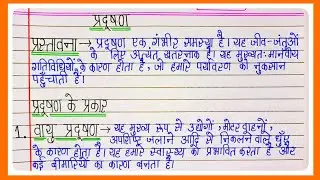 प्रदूषण
प्रस्तावना → प्रदूषण एक गंभीर समस्या है। यह जीव-जंतुओं
के लिए अत्यंत खतरनाक है। यह मुख्यतः मानवीय
गतिविधियों के कारण होता है, जो हमारे पर्यावरण को नुकसान
पहुँचाती हैं।
प्रदूषण के प्रकार
1. वायु प्रदूषण → यह मुख्य रूप से उद्योगों, मोटर वाहनों,
अपशिष्ट जलाने आदि से निकलने वाले धुएँ
के कारण होता है। यह हमारे स्वास्थ्य को प्रभावित करता है और
कई बीमारियों का कारण बनता है।